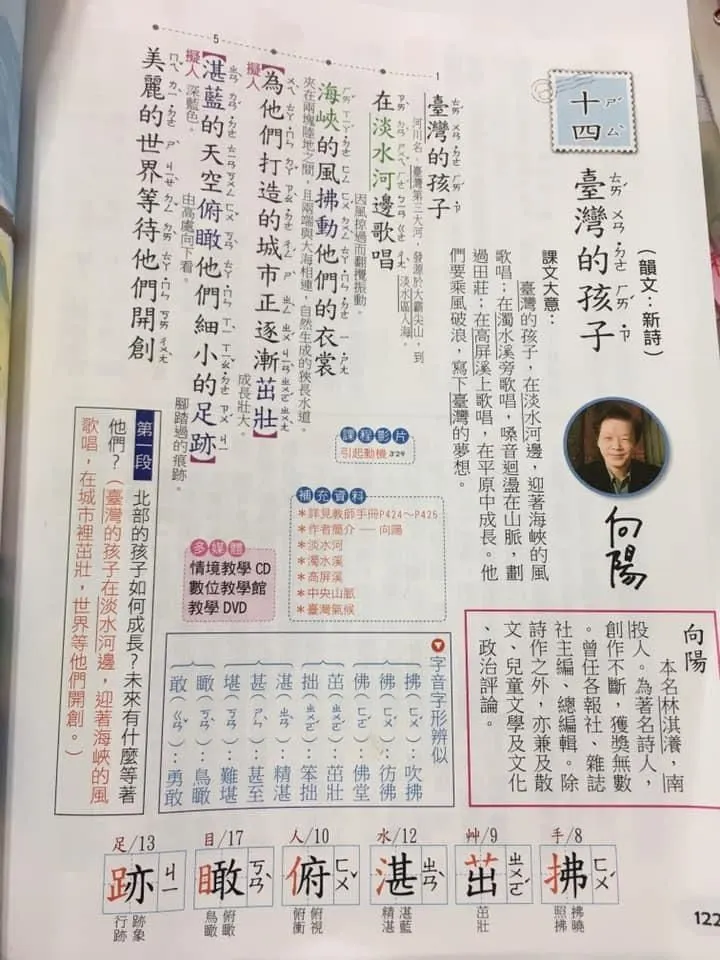 十四
臺灣的孩子
（韻文：新詩）
課文大意：
臺灣的孩子，在淡水河邊，迎著海峽的風
歌唱；在濁水溪旁歌唱，嗓音迴盪在山脈，劃
過田莊；在高屏溪上歌唱，在平原中成長。他
們要乘風破浪，寫下臺灣的夢想。
向陽
向陽
本名林淇瀁，南
投人。為著名詩人，
創作不斷，獲獎無數
。曾任各報社、雜誌
社主編、總編輯。除
詩作之外，亦兼及散
文、兒童文學及文化
、政治評論。
1
臺灣的孩子
河川名，臺灣第三大河，發源於大霸尖山，到
淡水區入海。
在淡水河邊歌唱
因風掠過而翻攪振動。
海峽的風拂動他們的衣裳
夾在兩塊陸地之間，且兩端與大海相連，自然生成的狹長水道。
為他們打造的城市正逐漸茁壯
擬人
成長壯大。
5
湛藍的天空俯瞰他們細小的足跡
擬人
深藍色。
由高處向下看。
腳踏過的痕跡。
美麗的世界等待他們開創
課程影片
引起動機 3'29
補充資料
＊詳見教師手冊P424～P426
＊作者簡介——向陽
＊淡水河
＊濁水溪
＊高屏溪
＊中央山脈
＊臺灣氣候
多媒體
情境教學 CD
數位教學館
教學 DVD
第一段
北部的孩子如何成長？未來有什麼等著
他們？（臺灣的孩子在淡水河邊，迎著海峽的風
歌唱，在城市裡茁壯，世界等他們開創。）
字音字形辨似
拂（ㄈㄨˊ）：吹拂
彿（ㄈㄨˊ）：彷彿
佛（ㄈㄛˊ）：佛堂
茁（ㄓㄨㄛˊ）：茁壯
拙（ㄓㄨㄛˊ）：笨拙
湛（ㄓㄢˋ）：精湛
甚（ㄕㄣˋ）：甚至
堪（ㄎㄢ）：難堪
瞰（ㄎㄢˋ）：鳥瞰
敢（ㄍㄢˇ）：勇敢
手/8
拂 ㄈㄨˊ
拂曉
照拂
艸/9
茁 ㄓㄨㄛˊ
茁壯
水/12
湛 ㄓㄢˋ
湛藍
精湛
人/10
俯 ㄈㄨˇ
俯視
俯衝
目/17
瞰 ㄎㄢˋ
俯瞰
鳥瞰
足/13
跡 ㄐㄧ
跡象
行跡
122